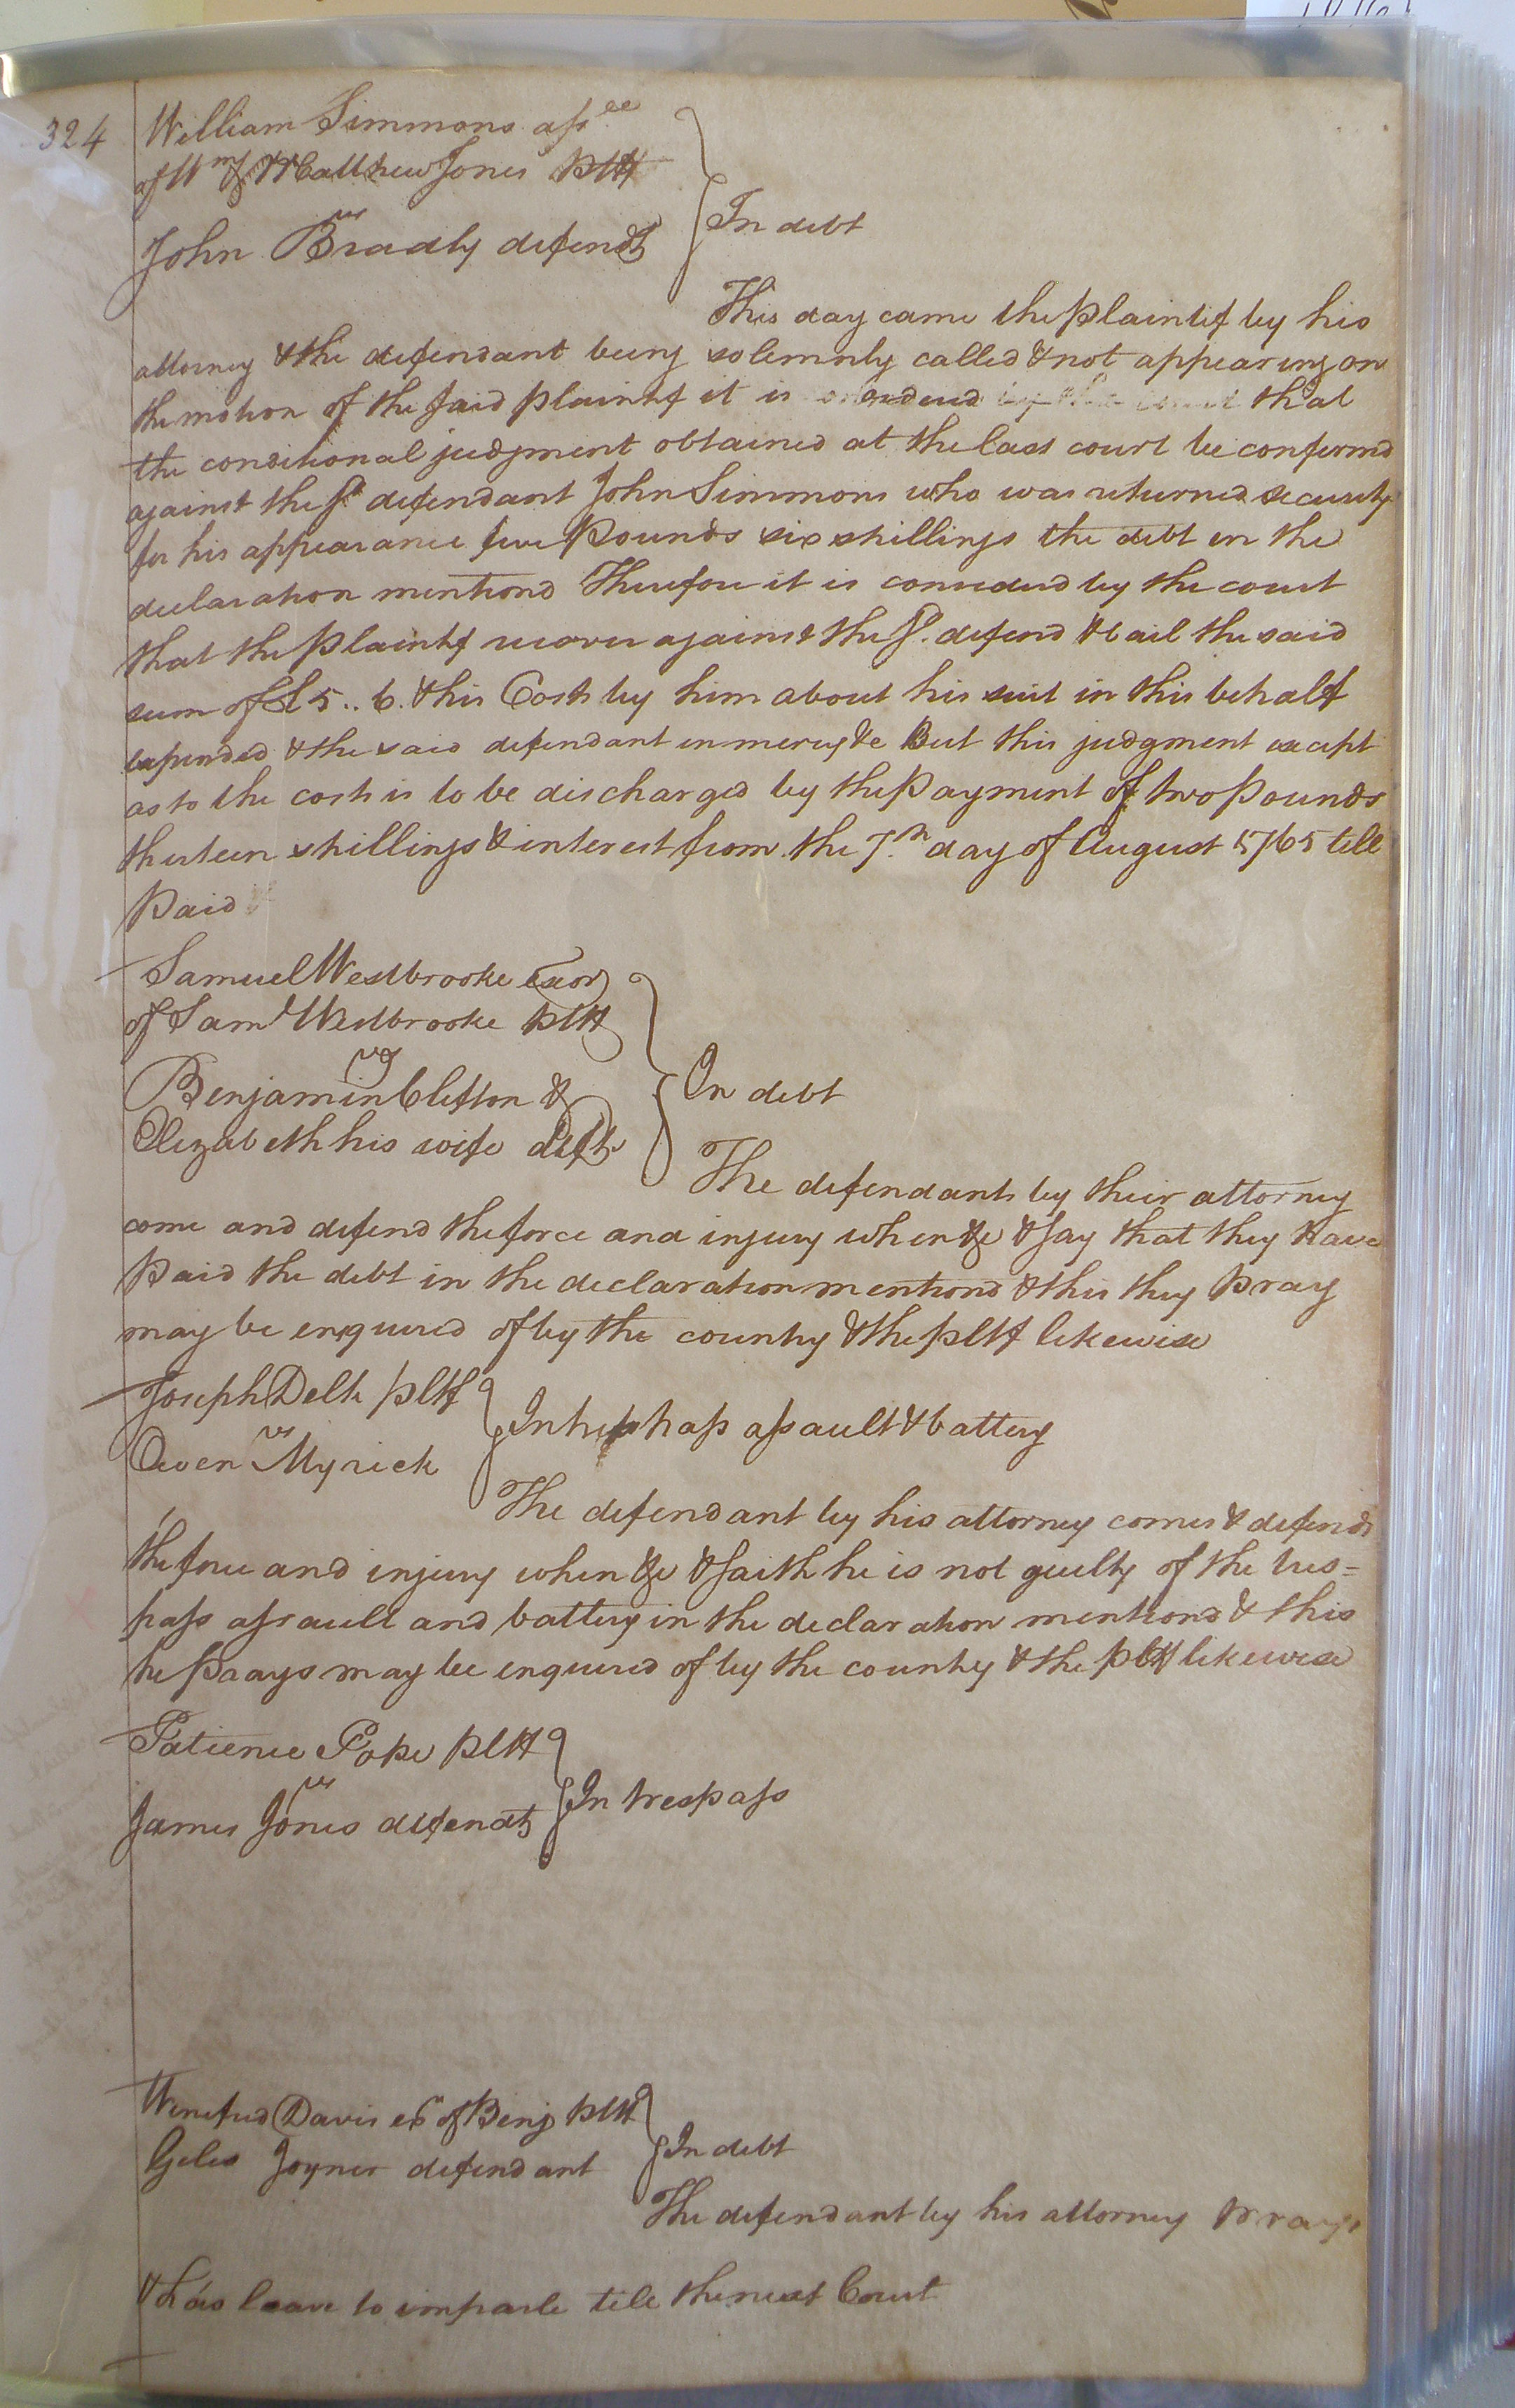 324
William Simmons assee
of Wm & Matthew Jones pltf
vs
John Bradly defendt
In debt
This day came the plaintif by his
attorney & the defendant being solemnly called & not appearing on
the motion of the said plaintif it is that
the conditional judgment obtained at the last court be confermd
against the sd defendant John Simmons who was returned security
for his appearance five pounds six shillings the debt in the
declaration mentiond Therefore it is considerd by the court
that the plaintif recover against the sd. defend & bail the said
sum of £5..6. & his Costs by him about his suit in this behalf
expended & the said defendant in mercy &c But this judgment except
as to the costs is to be discharged by the payment of two pounds
thirteen shillings & interest from the 7.th day of August 1765 till
paid
Samuel Westbrooke exor
of Saml Westbrooke pltf
vs
Benjamin Clifton &
Elizabeth his wife defts
In debt
The defendants by their attorney
come and defend the force and injury when &c & say that they have
paid the debt in the declaration mentiond & this they pray
may be enquired of by the country & the pltf likewise
Joseph Delk pltf
vs
Owen Myrick
In trespass assault & battery
The defendant by his attorney comes & defends
the force and injury when &c & saith he is not guilty of the tres=
pass assault and battery in the declaration mentiond & this
he prays may be enquired of by the country & the pltf likewise
Patience Pope pltf
vs
James Jones defendt
In trespass
Winefred Davis exr of Benj pltf
Giles Joyner defendant
In debt
The defendant by his attorney prays
& has leave to imparle till the next Court